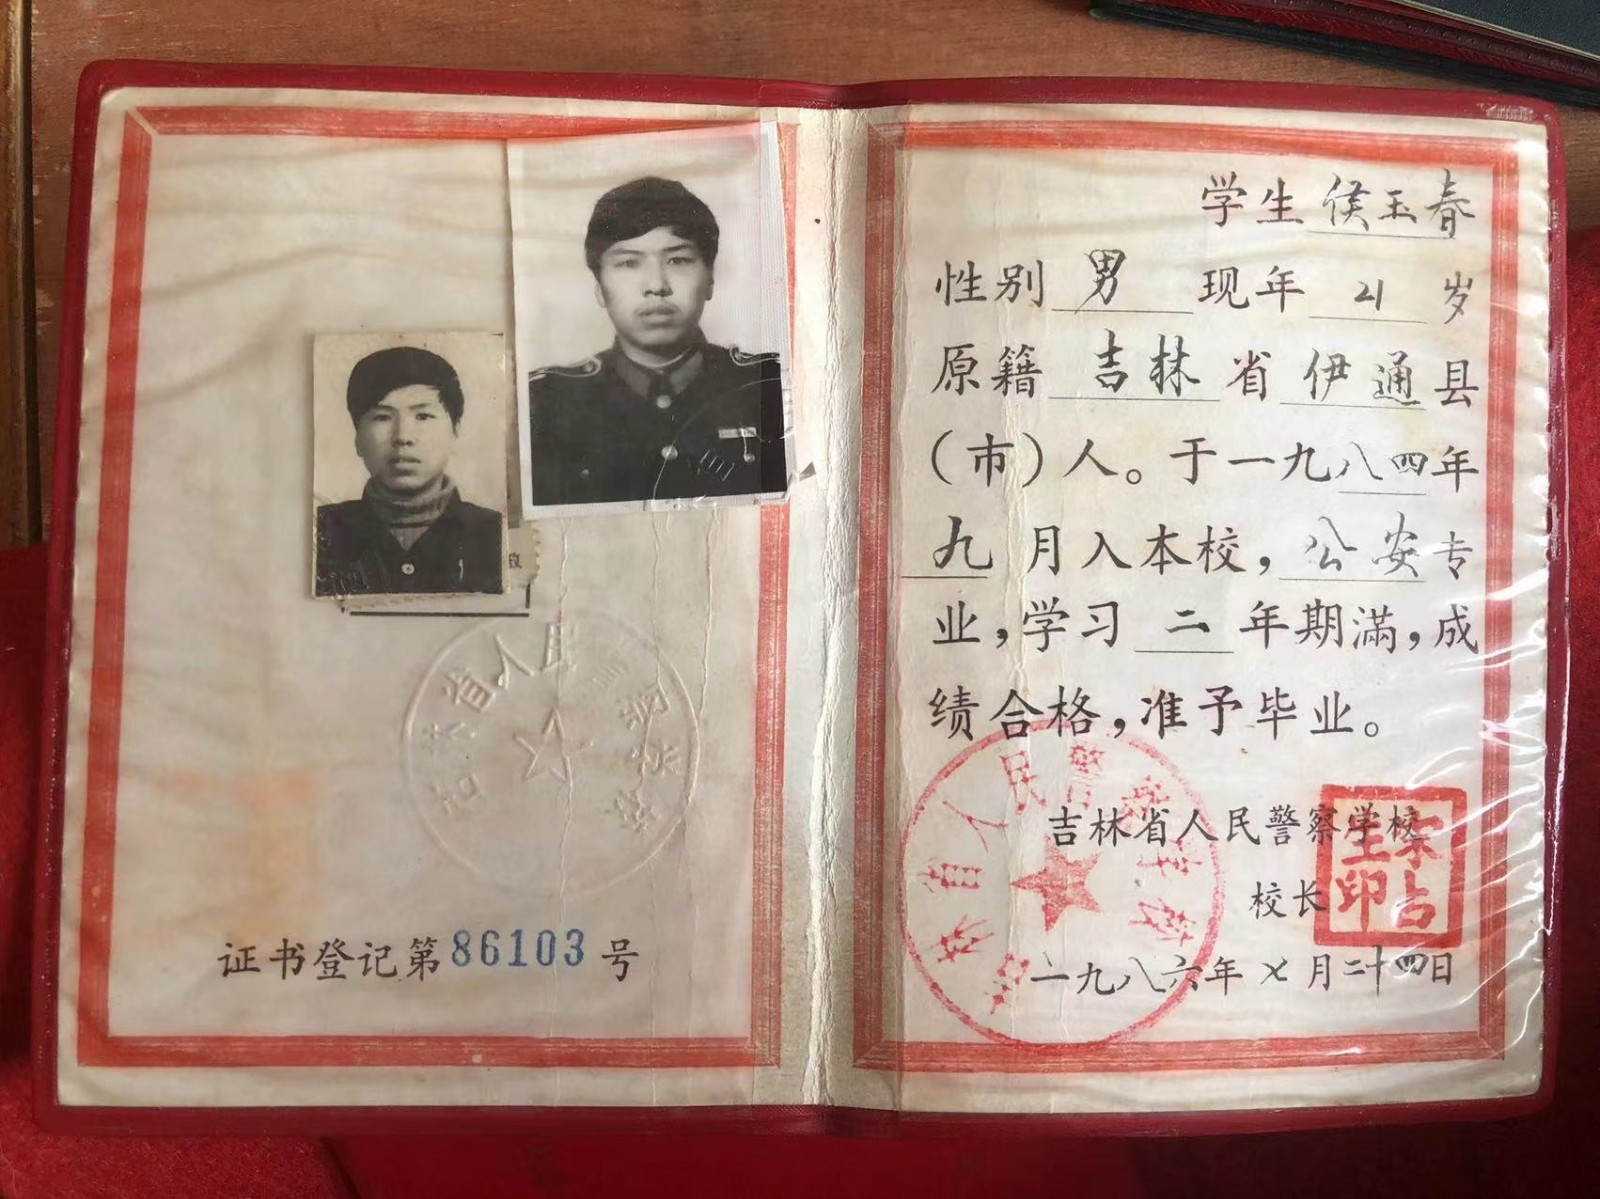 吉林省人民警察学校
证书登记第86103号
学生 侯玉春
性别 男 现年 21 岁
原籍 吉林 省 伊通 县
(市)人。于一九八四年
九 月入本校,公安专
业,学习 二 年期满,成
绩合格,准予毕业。
吉林省人民警察学校
校长
宗占生印
一九八六年七月二十四日
吉林省人民警察学校